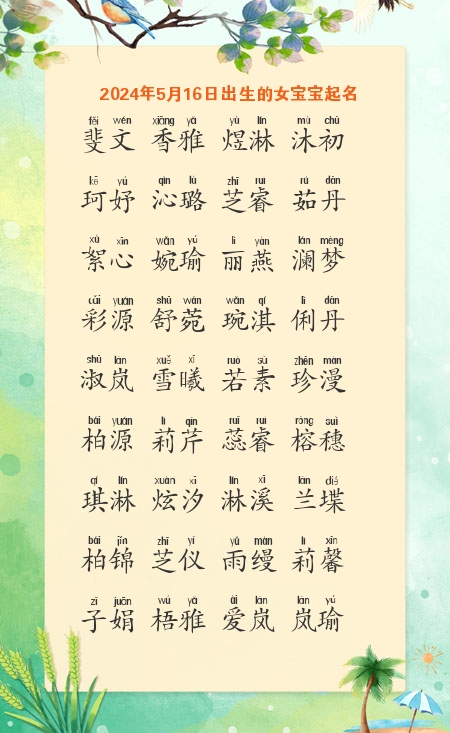 2024年5月16日出生的女宝宝起名
fěi wén xiāng yǎ yù lín mù chū
斐文 香雅 煜淋 沐初
kē yú qìn lù zhī ruì rú dān
珂妤 沁璐 芝睿 茹丹
xù xīn wǎn yú lì yàn lán mèng
絮心 婉瑜 丽燕 澜梦
cǎi yuán shū wǎn wǎn qí lì dān
彩源 舒菀 琬淇 俐丹
shū lán xuě xī ruò sù zhēn màn
淑岚 雪曦 若素 珍漫
bǎi yuán lì qín ruǐ ruì róng suì
柏源 莉芹 蕊睿 榕穗
qí lín xuàn xī lín xī lán dié
琪淋 炫汐 淋溪 兰堞
bǎi jǐn zhī yí yǔ màn lì xīn
柏锦 芝仪 雨缦 莉馨
zǐ juān wú yǎ ài lán lán yú
子娟 梧雅 爱岚 岚瑜